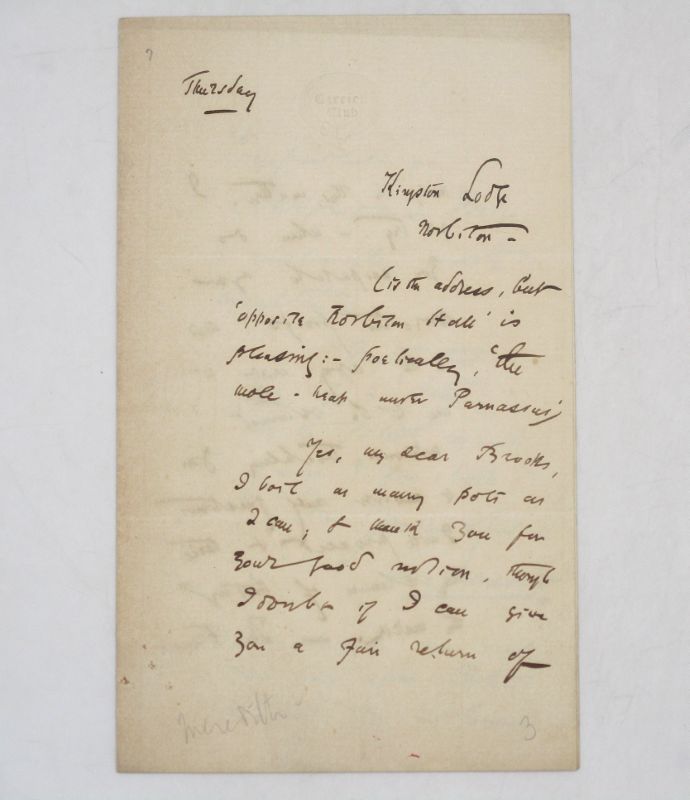 ?
Thursday
Garrick
Club
Kingston Lodge
Norbiton -
(is the address, but
'opposite Norbiton Hall' is
pleasing: - poetically, 'the
mole-heap under Parnassus')
Yes, my dear Brooks,
I boil as many pots as
I can; & thank you for
your good notion, though
I doubt if I can give
you a fair return of
Meredith
3